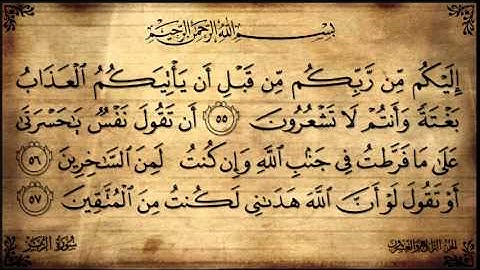 بِسْمِ اللَّهِ الرَّحْمَٰنِ الرَّحِيمِ
إِلَيْكُم مِّن رَّبِّكُم مِّن قَبْلِ أَن يَأْتِيَكُمُ ٱلْعَذَابُ
بَغْتَةً وَأَنتُمْ لَا تَشْعُرُونَ ٥٥ أَن تَقُولَ نَفْسٌ يَٰحَسْرَتَىٰ
عَلَىٰ مَا فَرَّطتُ فِى جَنۢبِ ٱللَّهِ وَإِن كُنتُ لَمِنَ ٱلسَّٰخِرِينَ ٥٦
أَوْ تَقُولَ لَوْ أَنَّ ٱللَّهَ هَدَىٰنِى لَكُنتُ مِنَ ٱلْمُتَّقِينَ ٥٧
سورة الزمر
الجزء الرابع والعشرون